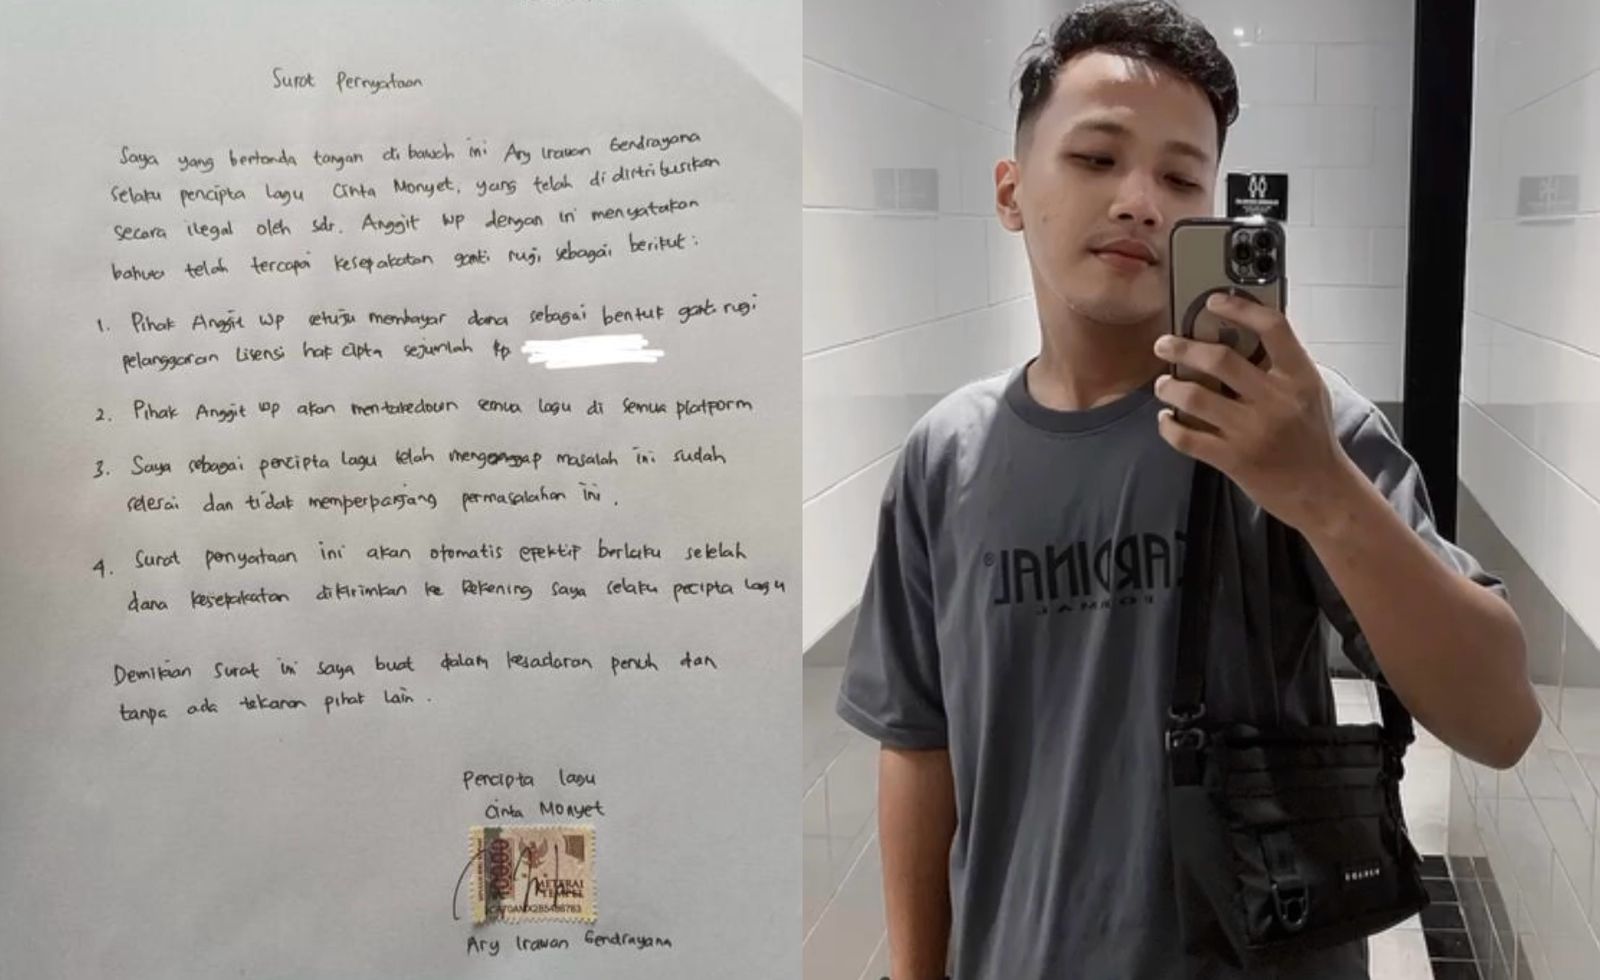 Surat Pernyataan
Saya yang bertanda tangan di bawah ini Ary Irawan Gendrayana
selaku pencipta lagu Cinta Monyet, yang telah di distribusikan
secara ilegal oleh sdr. Anggit wp dengan ini menyatakan
bahwa telah tercapai kesepakatan ganti rugi sebagai berikut :
1. Pihak Anggit wp setuju membayar dana sebagai bentuk ganti rugi
pelanggaran Lisensi hak cipta sejumlah Rp
2. Pihak Anggit wp akan mentakedown semua lagu di semua platform
3. Saya sebagai pencipta lagu telah menganggap masalah ini sudah
selesai dan tidak memperpanjang permasalahan ini .
4. Surat penyataan ini akan otomatis efektif berlaku setelah
dana kesepakatan dikirimkan ke Rekening saya selaku pecipta lagu
Demikian surat ini saya buat dalam kesadaran penuh dan
tanpa ada tekanan pihak lain .
Pencipta lagu
Cinta Monyet
10000
METERAI
TEMPEL
Ary Irawan Gendrayana
CARDINAL®
FORMAL